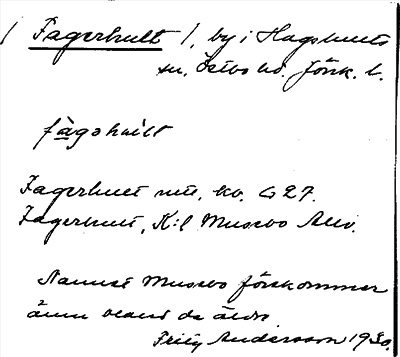 / Fagerhult /, by i Hagshults
sn, Östbo hd. Jönk. l.
fàgəhult
Fagerhult
Fagerhult, K:l Musebo
Namnet Musebo förekommer
ännu bland de äldre
Fritz Andersson 1930.